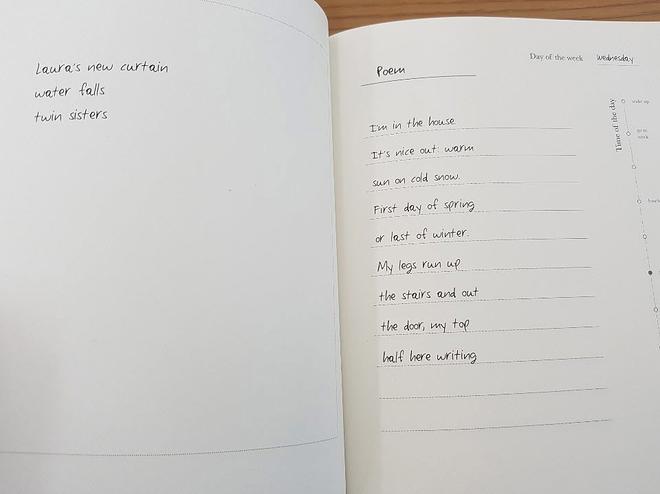 Laura's new curtain
water falls
twin sisters
Day of the week wednesday
Poem
I'm in the house.
It's nice out: warm
sun on cold snow.
First day of spring
or last of winter.
My legs run up
the stairs and out
the door, my top
half here writing
Time of the day
wake up